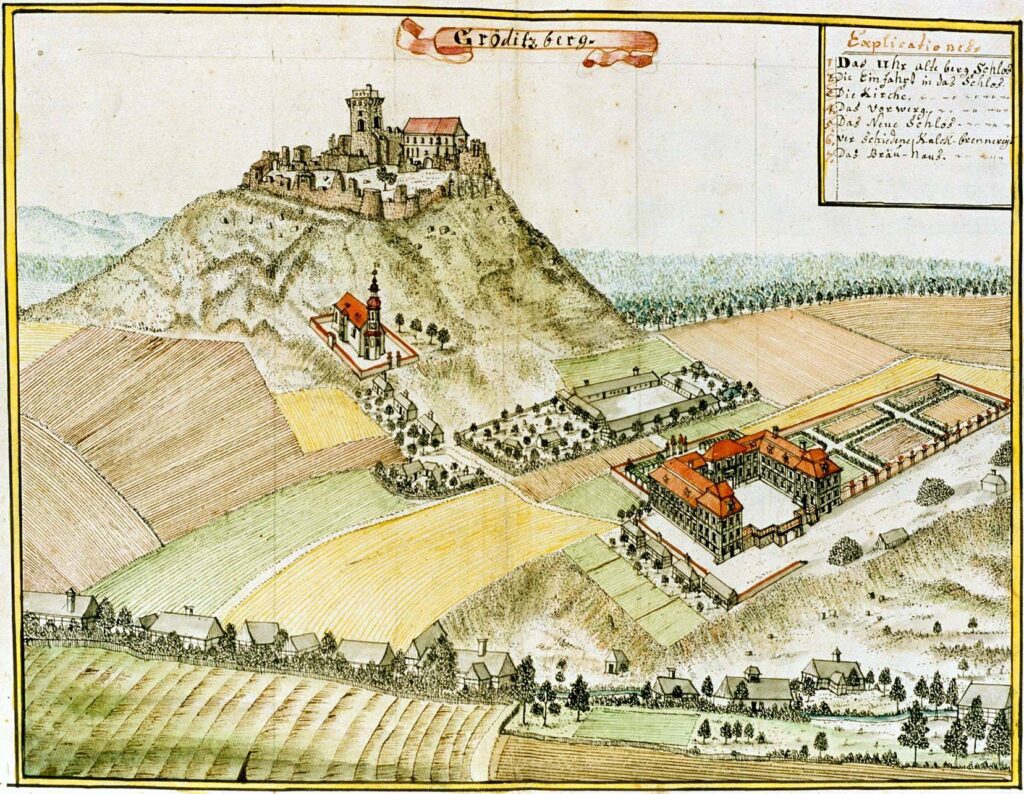 Gröditzberg.
Explicationes.
1 Das Uhr alte berg Schloß
2 Die Einfahrt in das Schloß.
3 Die Kirche,
4 Das Vorwerg,
5 Das Neue Schloß
6 Verschiedene Kalck-brennereyen
7 Das Bräu-haus.